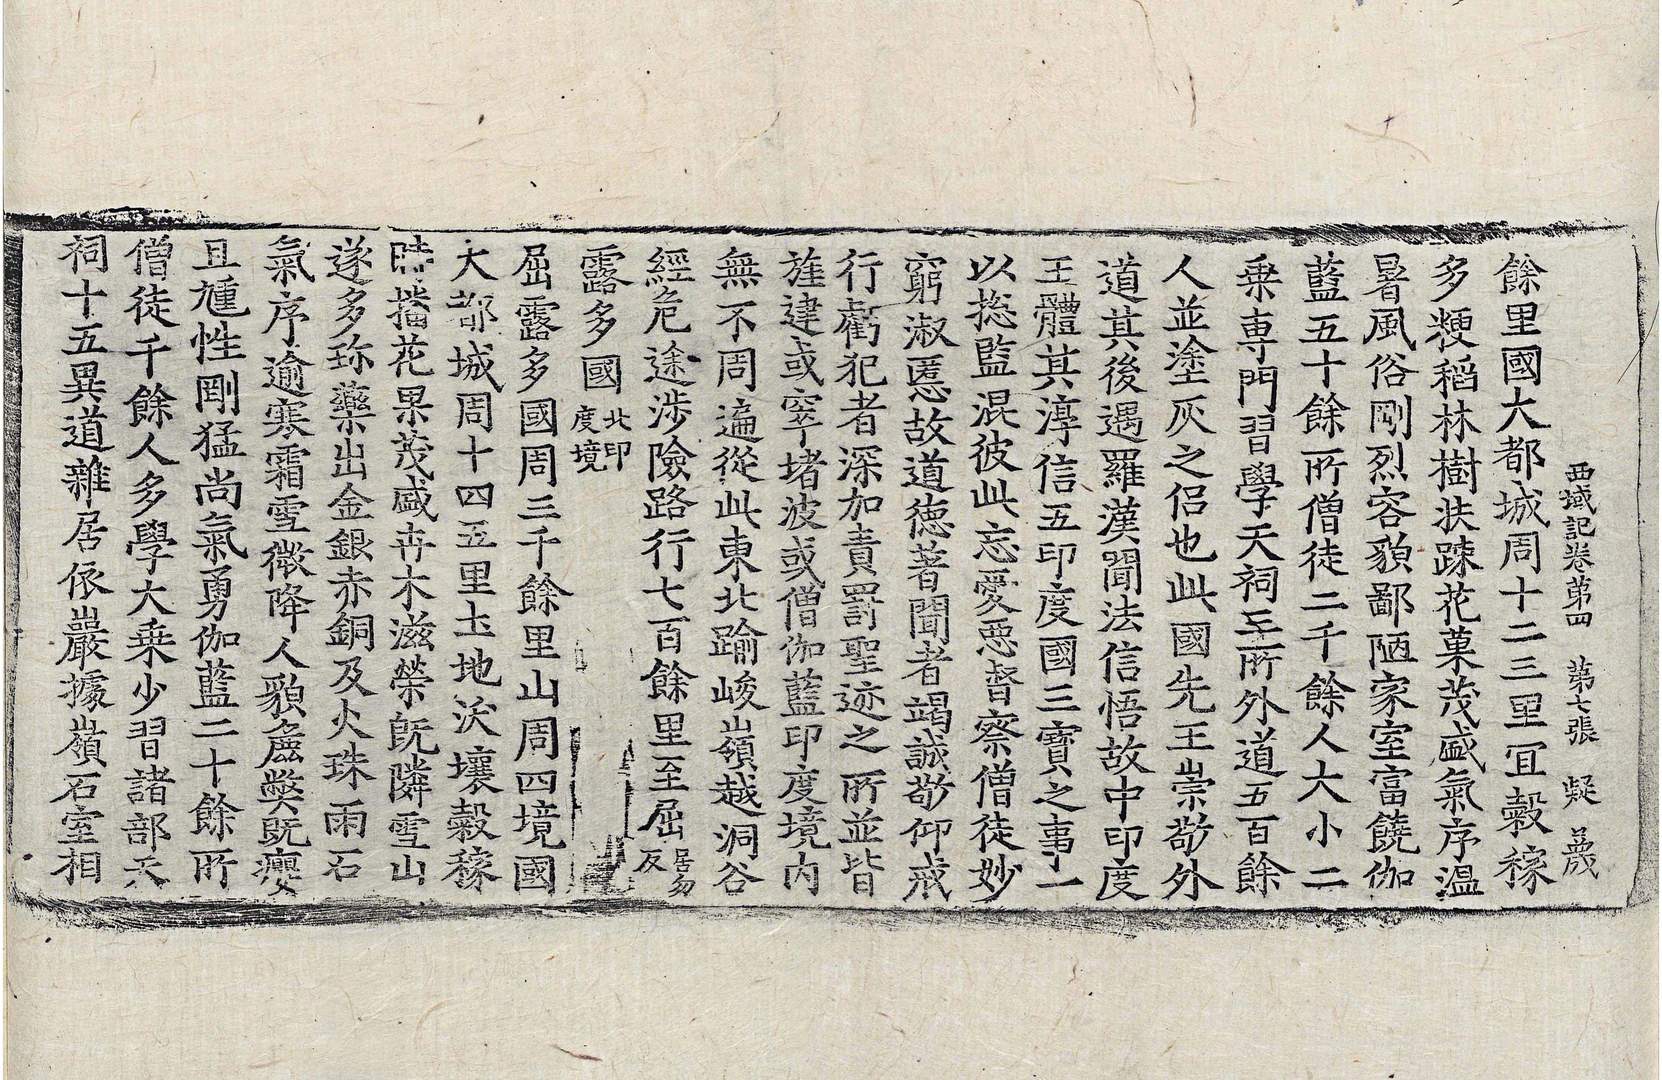 西域記卷第四 第七張 凝 歲
餘里國大都城周十二三里冝糓稼
多粳稻林樹扶踈花菓茂盛氣序温
暑風俗剛烈容貌鄙陋家室富饒伽
藍五十餘所僧徒二千餘人大小二
乗専門習學天祠三所外道五百餘
人並塗灰之侣也此國先王崇敬外
道其後遇羅漢聞法信悟故中印度
王體其淳信五印度國三寶之事一
以揔監混彼此忘愛惡督察僧徒妙
窮淑慝故道徳著聞者竭誠敬仰戒
行虧犯者深加責罰聖迹之所並皆
旌建或窣堵波或僧伽藍印度境内
無不周遍從此東北踰峻嶺越洞谷
經危途涉險路行七百餘里至屈居勿反
露多國北印度境
屈露多國周三千餘里山周四境國
大都城周十四五里圡地沃壤糓稼
時播花果茂盛卉木滋榮旣隣雪山
遂多珎藥出金銀赤銅及火珠雨石
氣序逾寒霜雪微降人貌麁獘旣癭
且尰性剛猛尚氣勇伽藍二十餘所
僧徒千餘人多學大乗少習諸部天
祠十五異道雜居依巖據嶺石室相